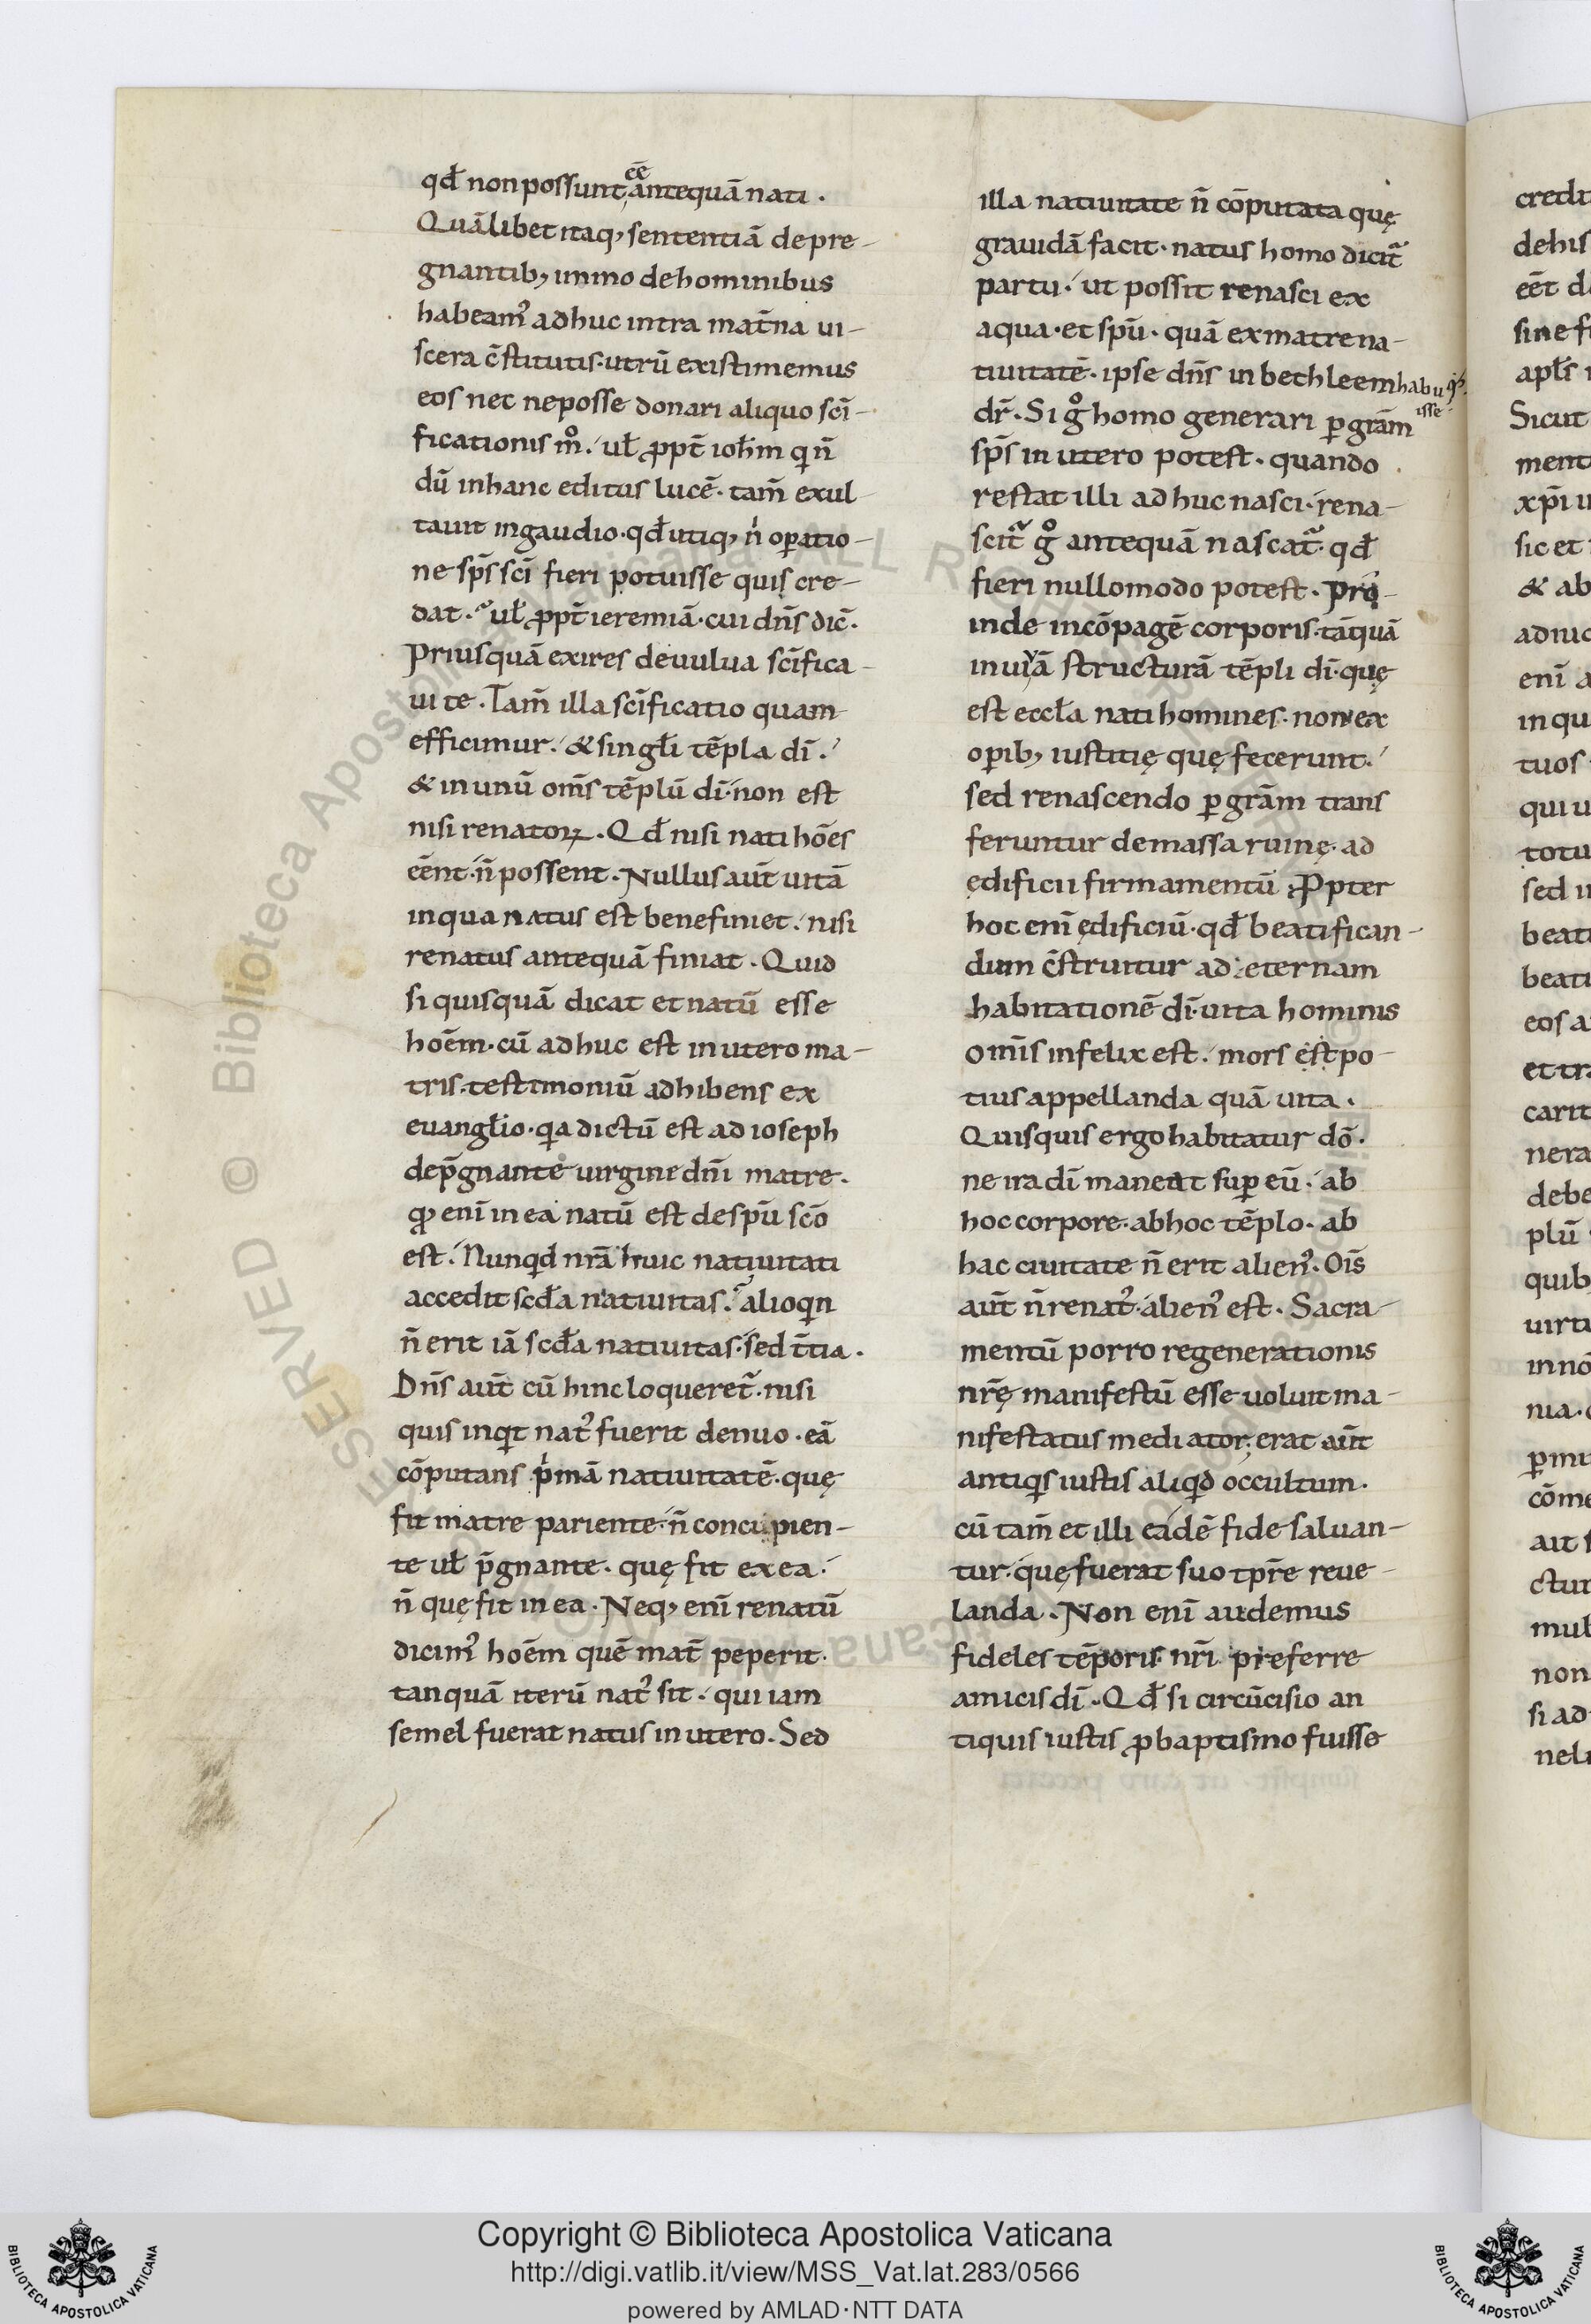 qđ non possunt, antequā nati .
eē
Quālibet itaq; sententiā de pre-
gnantib; immo de hominibus
habeam᾿ adhuc intra mat̄na ui-
scera c̄stitutis. utrū existimemus
eos nec ne posse donari aliquo scī-
ficationis m̊. ul̵ ꝓpt̄ ioh̄m q n̄
dū in hanc editus lucē. tam̄ exul
tauit in gaudio. qđ utiq; n̄ oꝑatio-
ne sp̄s scī fieri potuisse quis cre-
dat. ul̵ ꝓpt̄ ieremiā. cui dn̄s dic̄.
Priusquā exires de uulua scīfica-
ui te. Tam̄ illa scīficatio quam
efficimur. & singl̵i tēpla dī.
& in unū om̄s tēplū dī. non est
nisi renatoꝝ. Qđ nisi nati hōes
eēnt. n̄ possent. Nullus aut̄ uitā
in qua natus est bene finiet. nisi
renatus antequā finiat. Quid
si quisquā dicat et natū esse
hoēm. cū adhuc est in utero ma-
tris. testimoniū adhibens ex
euangl̵io. qa dictū est ad ioseph
de p̄gnante uirgine dn̄i matre.
qđ enī in ea natū est de sp̄u scō
est. Nunqd nr̄ā huic natiuitati
accedit scđa natiuitas. alioqn
n̄ erit iā scđa natiuitas. sed t̄tia.
Dn̄s aut̄ cū hinc loqueret᷒. nisi
quis inqt nat᾿ fuerit denuo. eā
cōputans pͥmā natiuitatē. quę
fit matre pariente. n̄ concipien-
te ul̵ p̄gnante. quę fit ex ea.
n̄ quę fit in ea. Neq; enī renatū
dicim᾿ hoēm quē mat̄ peperit.
tanquā iterū nat᾿ sit. qui iam
semel fuerat natus in utero. Sed
illa natiuitate n̄ cōputata quę
grauidā facit. natus homo dicit᷒
partu. ut possit renasci ex
aqua. et sp̄u. quā ex matre na-
tiuitatē. ipse dn̄s in bethleem habu
isse
dr̄. Si g̊ homo generari ꝑ grām
sp̄s in utero potest. quando
restat illi adhuc nasci. rena-
scit᷒ g̊ antequā nascat᷒. qđ
fieri nullo modo potest. Pro-
inde in cōpagē corporis. tāquā
in uiuā structurā tēpli dī. quę
est eccl̵a nati homines. non ex
oꝑib; iustitię quę fecerunt.
sed renascendo ꝑ grām trans
feruntur de massa ruinę. ad
ędificii firmamentū. Ppter
hoc enī ędificiū. qđ beatifican-
dum c̄struitur ad eternam
habitationē dī. uita hominis
om̄is infelix est. mors est po-
tius appellanda quā uita.
Quisquis ergo habitatur dō.
ne ira dī maneat suꝑ eū. ab
hoc corpore. ab hoc tēplo. ab
hac ciuitate n̄ erit alien᾿. Oīs
aut̄ n̄ renat᾿. alien᾿ est. Sacra-
mentū porro regenerationis
nr̄ę manifestū esse uoluit ma-
nifestatus mediator. erat aut̄
antiqs iustis aliqd occultum.
cū tam̄ et illi eadē fide saluan-
tur. quę fuerat suo tp̄re reue-
landa. Non enī audemus
fideles tēporis nr̄i preferre
amicis dī. Qđ si circūcisio an
tiquis iustis ꝓ baptismo fuisse
credu
de his
eēt
sine f
apl̵s
Sicut
ment
xp̄i
sic et
& ab
enī a
in qu
tuos
qui u
totu
sed
beati
beati
eos a
et tr
carit
nera
debe
plū
quib
uirtu
in nō
nia.
cōme
ait
ctur
mul
non
si ad
nel
© Biblioteca Apostolica Vaticana ALL RIGHTS RESERVED
Copyright © Biblioteca Apostolica Vaticana
http://digi.vatlib.it/view/MSS_Vat.lat.283/0566
powered by AMLAD·NTT DATA
BIBLIOTECA APOSTOLICA VATICANA
BIBLIOTECA APOSTOLICA VATICANA